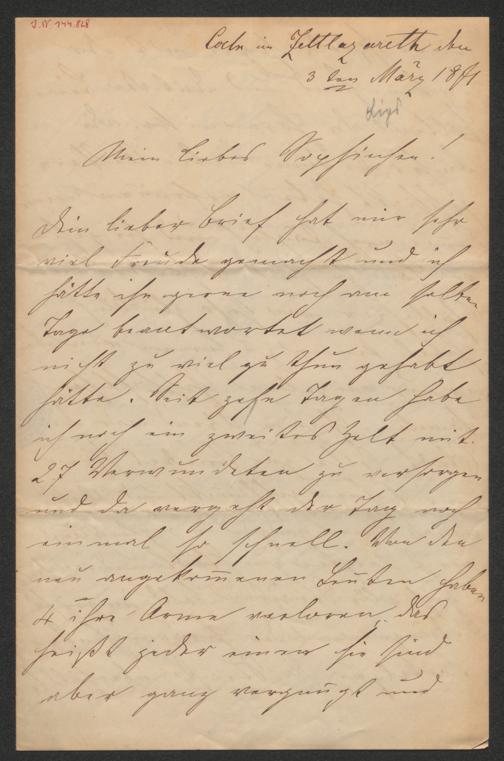 I.N. 144.828
Coeln im Zeltlazareth den
3 ten März 1871
Mein liebes Sophinchen!
Dein lieber Brief hat mir sehr
viel Freude gemacht und ich
hätte ihn gerne noch am selben
Tage beantwortet wenn ich
nicht zu viel zu thun gehabt
hätte. Seit zehn Tagen habe
ich noch ein zweites Zelt mit
27 Verwundeten zu versorgen
und da vergeht der Tag noch
einmal so schnell. Von den
neu angekommenen Leuten haben
4 ihre Arme verloren, das
heißt jeder einen sie sind
aber ganz vergnügt und